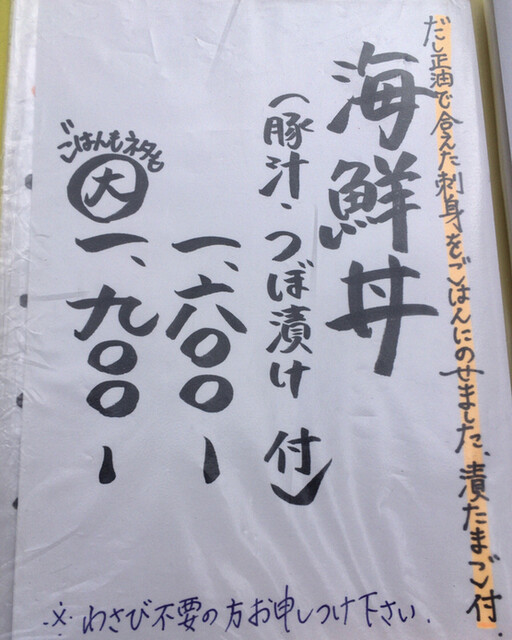 だし正油で合えた刺身をごはんにのせました、漬たまご付.
海鮮丼
(豚汁・つぼ漬け 付)
一、六〇〇ー
ごはんもネタも
大 一、九〇〇ー
※わさび不要の方お申しつけ下さい.